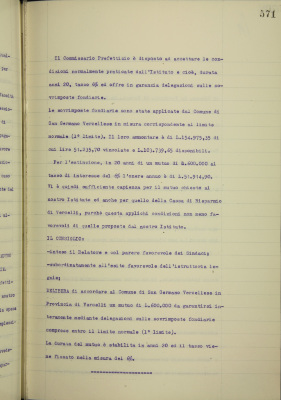 571
Il Commissario Prefettizio è disposto ad accettare le con-
dizioni normalmente praticate dall'Istituto e cioè, durata
anni 20, tasso 6% ed offre in garanzia delegazioni sulle so-
vrimposte fondiarie.
Le sovrimposte fondiarie sono state applicate dal Comune di
San Germano Vercellese in misura corrispondente al limite
normale (1° limite). Il loro ammontare è di L.154.975,35 di
cui lire vincolate e L. disponibili.
Per l'estinzione, in 20 anni di un mutuo di L.600.000 al
tasso di interesse del 6% l'onere annuo è di L.51.914,70.
Vi è quindi sufficiente capienza per il mutuo chiesto al
nostro Istituto ed anche per quello della Cassa di Risparmio
di Vercelli, purché questa applichi condizioni non meno fa-
vorevoli di quelle proposte dal nostro Istituto.
IL CONSIGLIO:
-inteso il Relatore e col parere favorevole dei Sindaci;
-subordinatamente all'esito favorevole dell'istruttoria le-
gale;
DELIBERA di accordare al Comune di San Germano Vercellese in
Provincia di Vercelli un mutuo di L.600.000 da garantirsi in-
teramente mediante delegazioni sulle sovrimposte fondiarie
comprese entro il limite normale (1° limite).
La durata del mutuo è stabilita in anni 20 ed il tasso vie-
ne fissato nella misura del 6%.